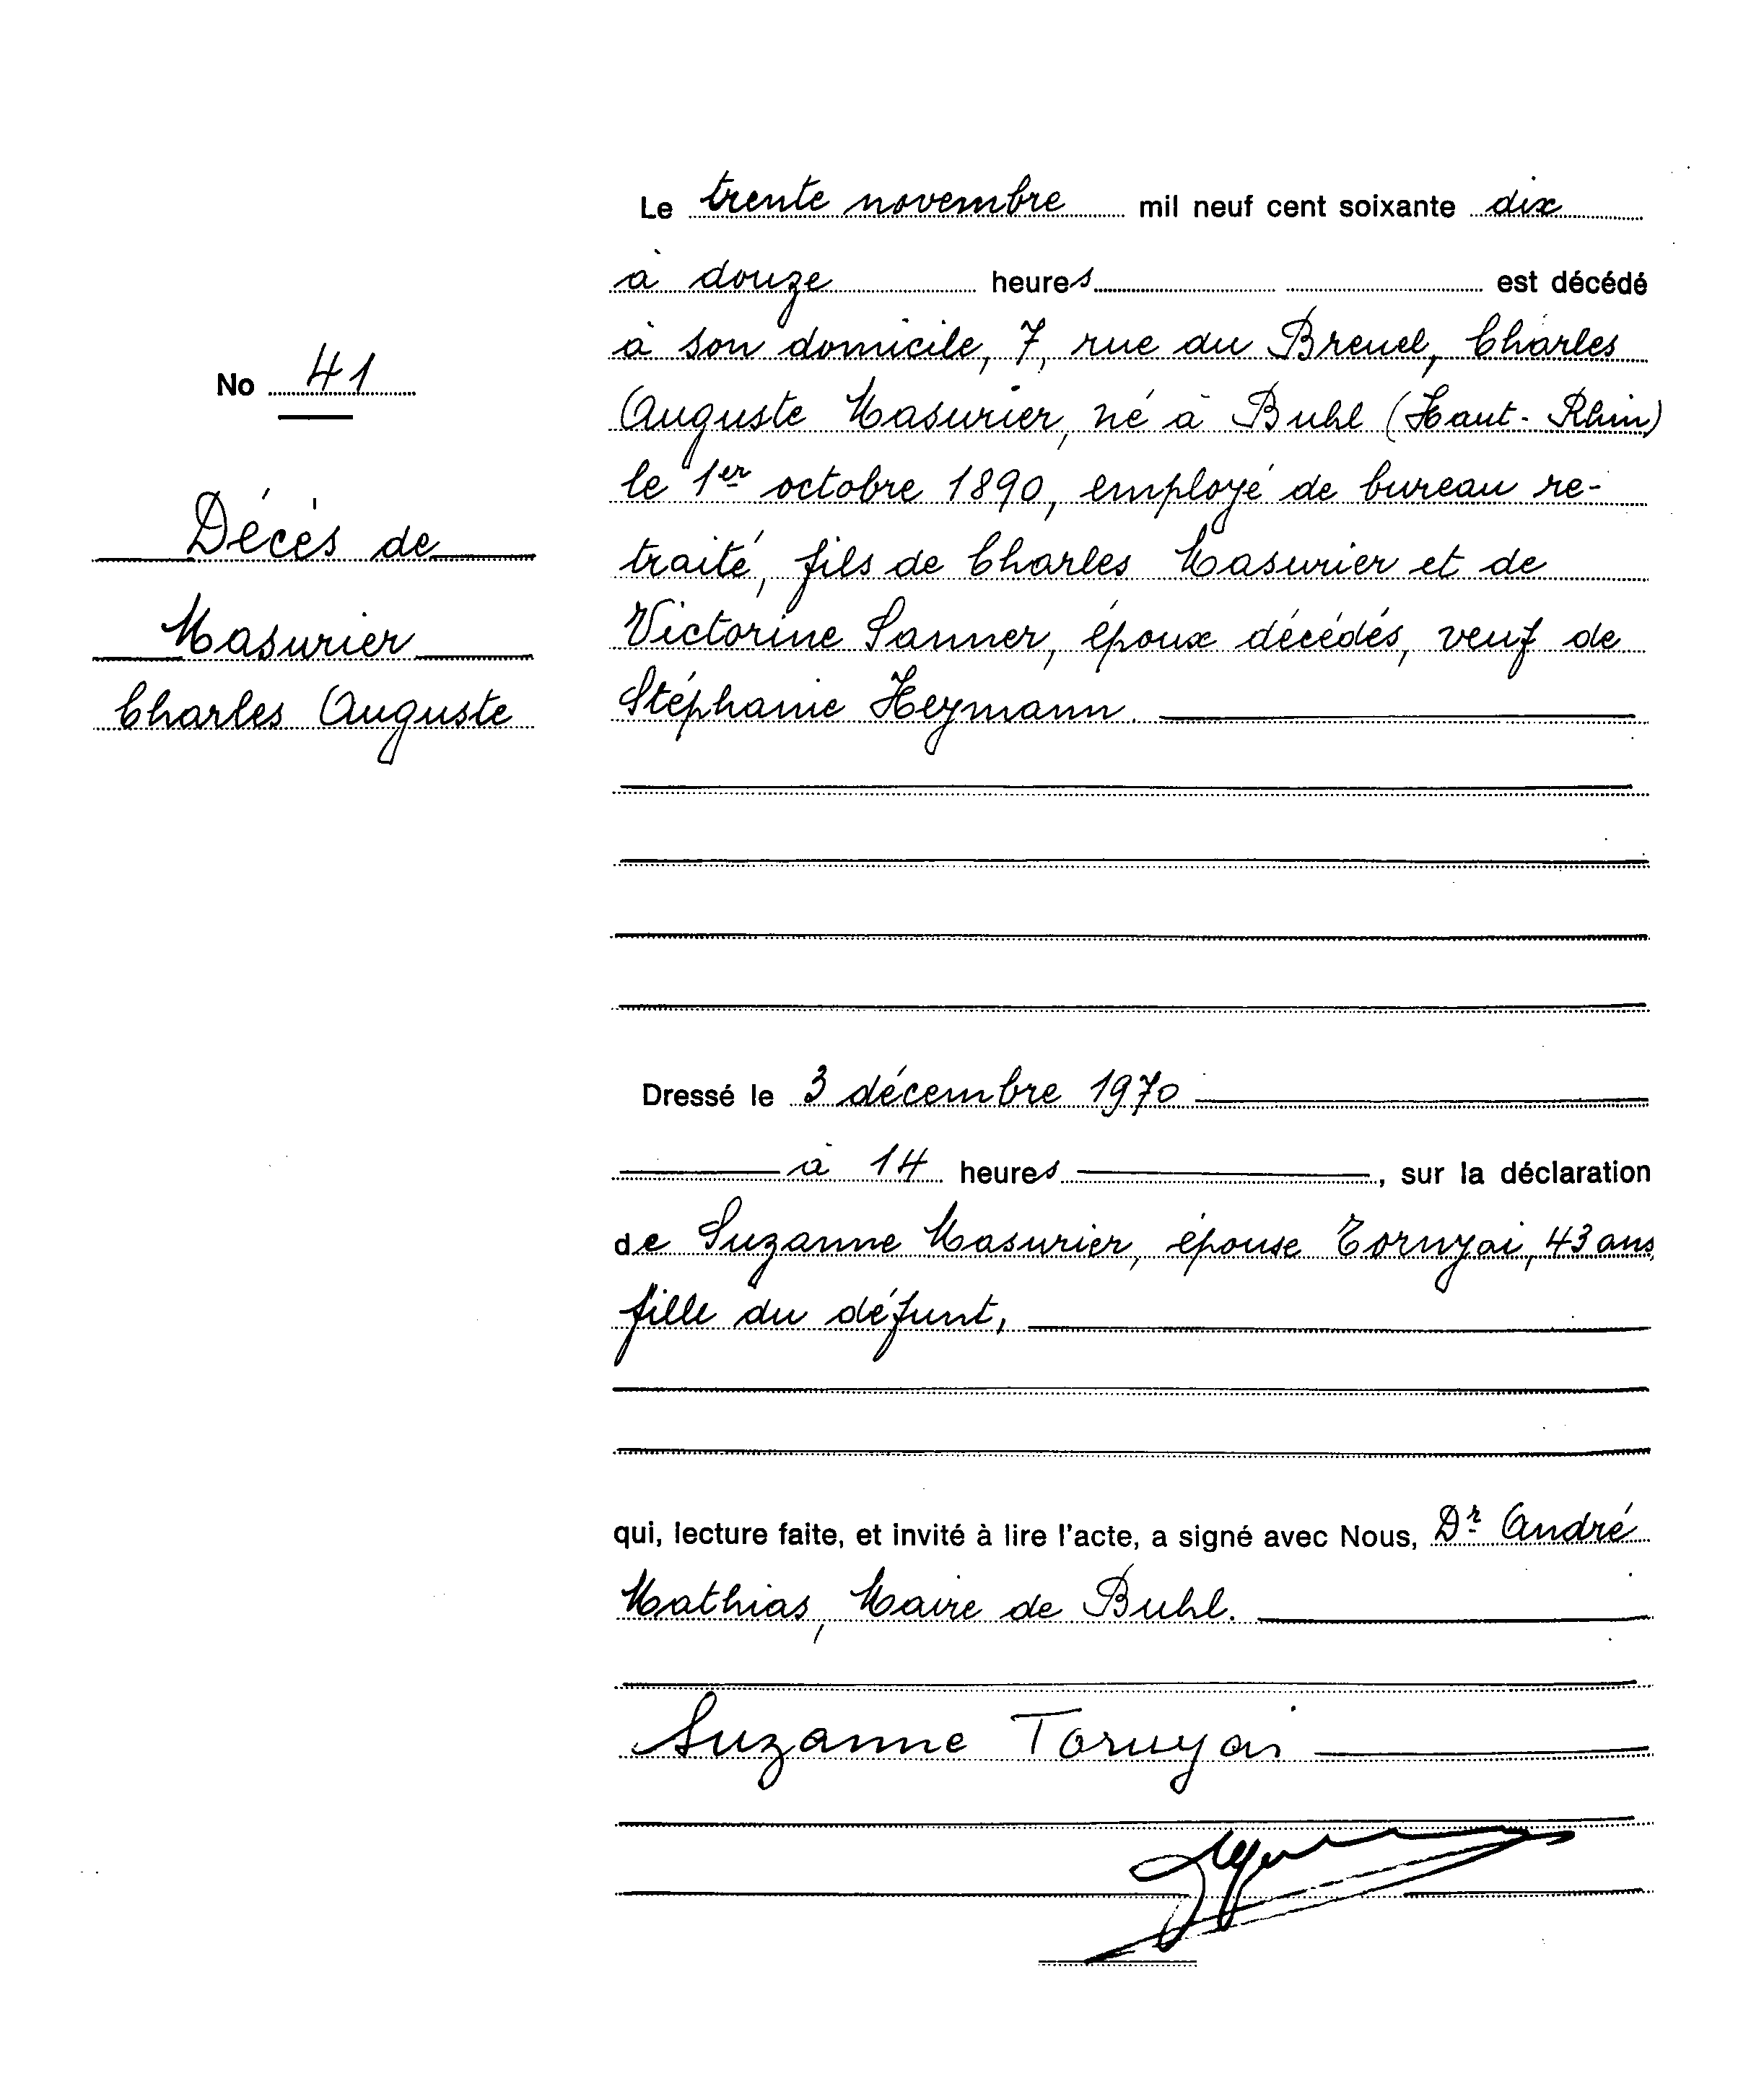 No 41
Décès de
Masurier
Charles Auguste
Le trente novembre mil neuf cent soixante dix
à douze heures est décédé
à son domicile, 7, rue du Breuel, Charles
Auguste Masurier, né à Buhl (Haut-Rhin)
le 1er octobre 1890, employé de bureau re-
traité, fils de Charles Masurier et de
Victorine Sanner, époux décédés, veuf de
Stéphanie Heymann.
Dressé le 3 décembre 1970
à 14 heures, sur la déclaration
de Suzanne Masurier, épouse Toruyai, 43 ans,
fille du défunt,
qui, lecture faite, et invité à lire l'acte, a signé avec Nous, Dr André
Mathias, Maire de Buhl.
Suzanne Toruyai